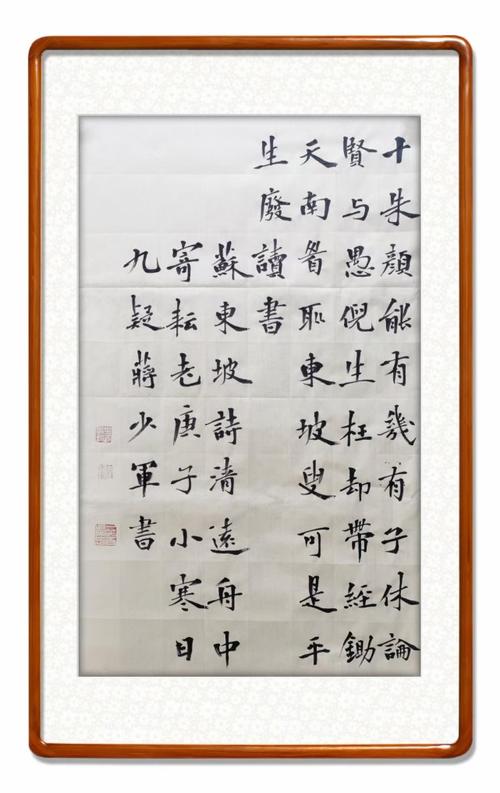 十朱顏能有幾有子休論
賢与愚倪生枉却帶經鋤
天南看取東坡叟可是平
生廢讀書
蘇東坡詩清遠舟中
寄耘老庚子小寒日
九疑蔣少軍書